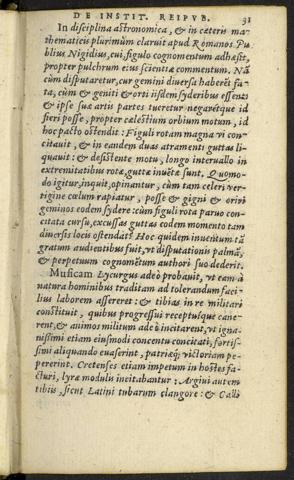 DE INSTIT. REIPVB. 91
In disciplina astronomica, & in cæteris ma-
thematicis plurimùm claruit apud Romanos. Pu-
blius Nigidius, cui, figulo cognomentum adhæsit,
propter pulchrum eius scientiæ commentum. Nā
cùm disputaretur, cur gemini diuersa haberēt fa-
ta, cùm & geniti & orti iisdem syderibus essent
& ipse suæ artis partes tueretur negaretque id
fieri posse, propter cælestium orbium motum, id
hoc pacto ostendit: Figuli rotam magna vi con-
citauit, & in eandem duas atramenti guttas li-
quauit: & desistente motu, longo interuallo in
extremitatibus rotæ guttæ inuētæ sunt. Quomo-
do igitur, inquit, opinantur, cùm tam celeri ver-
tigine cœlum rapiatur, posse & gigni & oriri
geminos eodem sydere: cùm figuli rota paruo con-
citata cursu, excussas guttas eodem momento tam
diuersis locis ostendat? Hoc quidem inuentum tā
gratum audientibus fuit, vt disputationis palmā,
& perpetuum cognomētum authori suo dederit.
Musicam Lycurgus adeò probauit, vt eam à
natura hominibus traditam ad tolerandum faci-
lius laborem assereret: & tibias in re militari
constituit, quibus progressui receptuique cane-
rent, & animos militum adeò incitarent, vt igna-
uissimi etiam eiusmodi concentu concitati, fortis-
simi aliquando euaserint, patriæq; victoriam pe-
pererint. Cretenses etiam impetum in hostes fa-
cturi, lyræ modulis incitabantur: Argiui autem
tibiis, sicut Latini tubarum clangore: & Calli